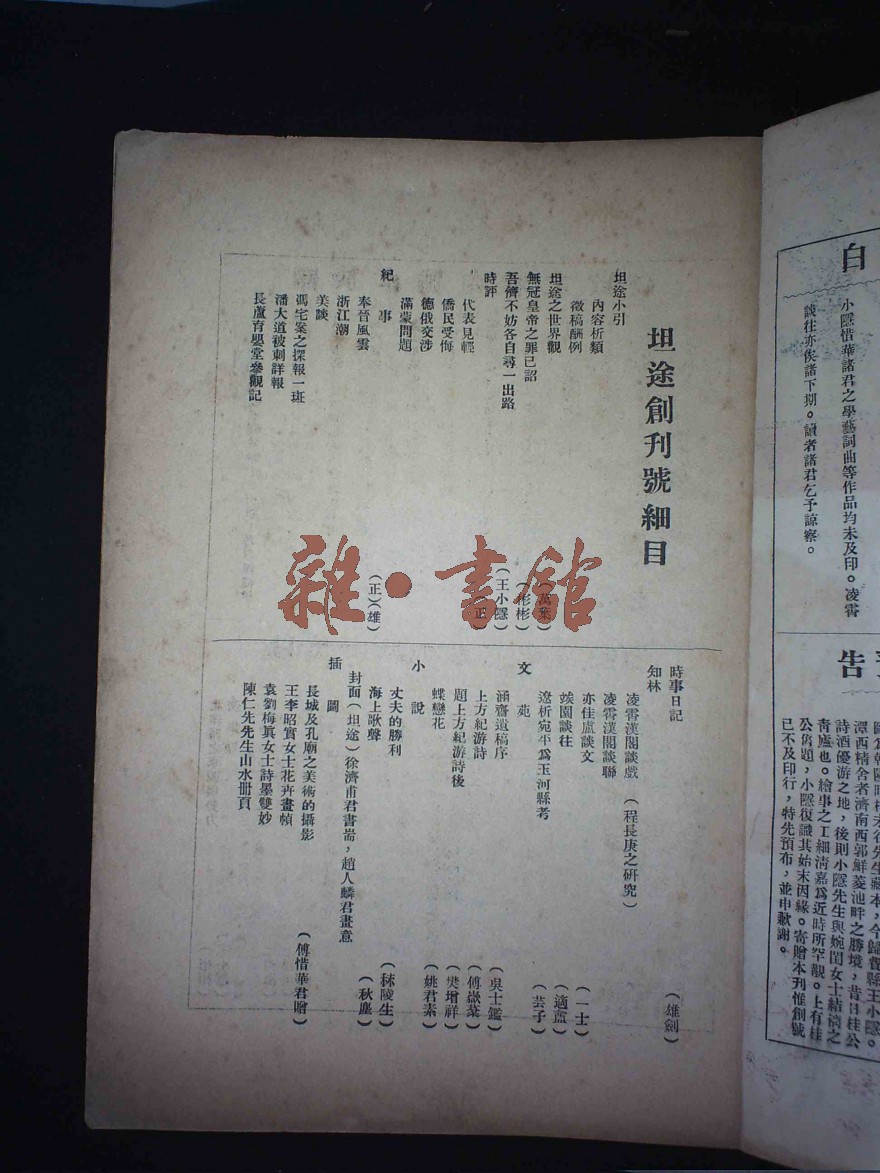 白
小隱惜華諸君之學藝詞曲等作品均未及印。凌霄
談往亦俟諸下期。讀者諸君乞予諒察。
告
潭西精舍者濟南西郭鮮菱池畔之勝境，昔日桂公
詩酒優游之地，後則小隱先生與婉閨女士結漪之
靑廬也。繪事之工細淸嘉爲近時所罕觀。上有桂
公舊題，小隱復識其始末因緣。寄贈本刊惟創號
已不及印行，特先預布，並申歉謝。
坦途創刊號細目
坦途小引
內容析類
徵稿酬例
坦途之世界觀（萬葉）
無冠皇帝之罪已詔（彬彬）
吾儕不妨各自尋一出路（王小隱）
時評（正）
代表見輕
僑民受侮
德俄交涉
滿蒙問題
紀事（正）（雄）
奉晉風雲
浙江潮
美談
馮宅案之探報一斑
潘大道被刺詳報
長蘆育嬰堂參觀記
時事日記（雄劍）
知林
凌霄漢閣談戲（程長庚之研究）
凌霄漢閣談聯
亦佳廬談文（一士）
竢園談往（適藍）
遼析宛平爲玉河縣考（芸子）
文苑
涵齋遺稿序（吳士鑑）
上方紀游詩（傅嶽棻）
題上方紀游詩後（樊增祥）
蝶戀花（姚君素）
小說
丈夫的勝利（秣陵生）
海上歌聲（秋塵）
封面（坦途）徐濟甫君書耑，趙人麟君畫意
插圖
長城及孔廟之美術的攝影（傅惜華君贈）
王李昭實女士花卉畫幀
袁劉梅眞女士詩墨雙妙
陳仁先先生山水冊頁
雜·書館